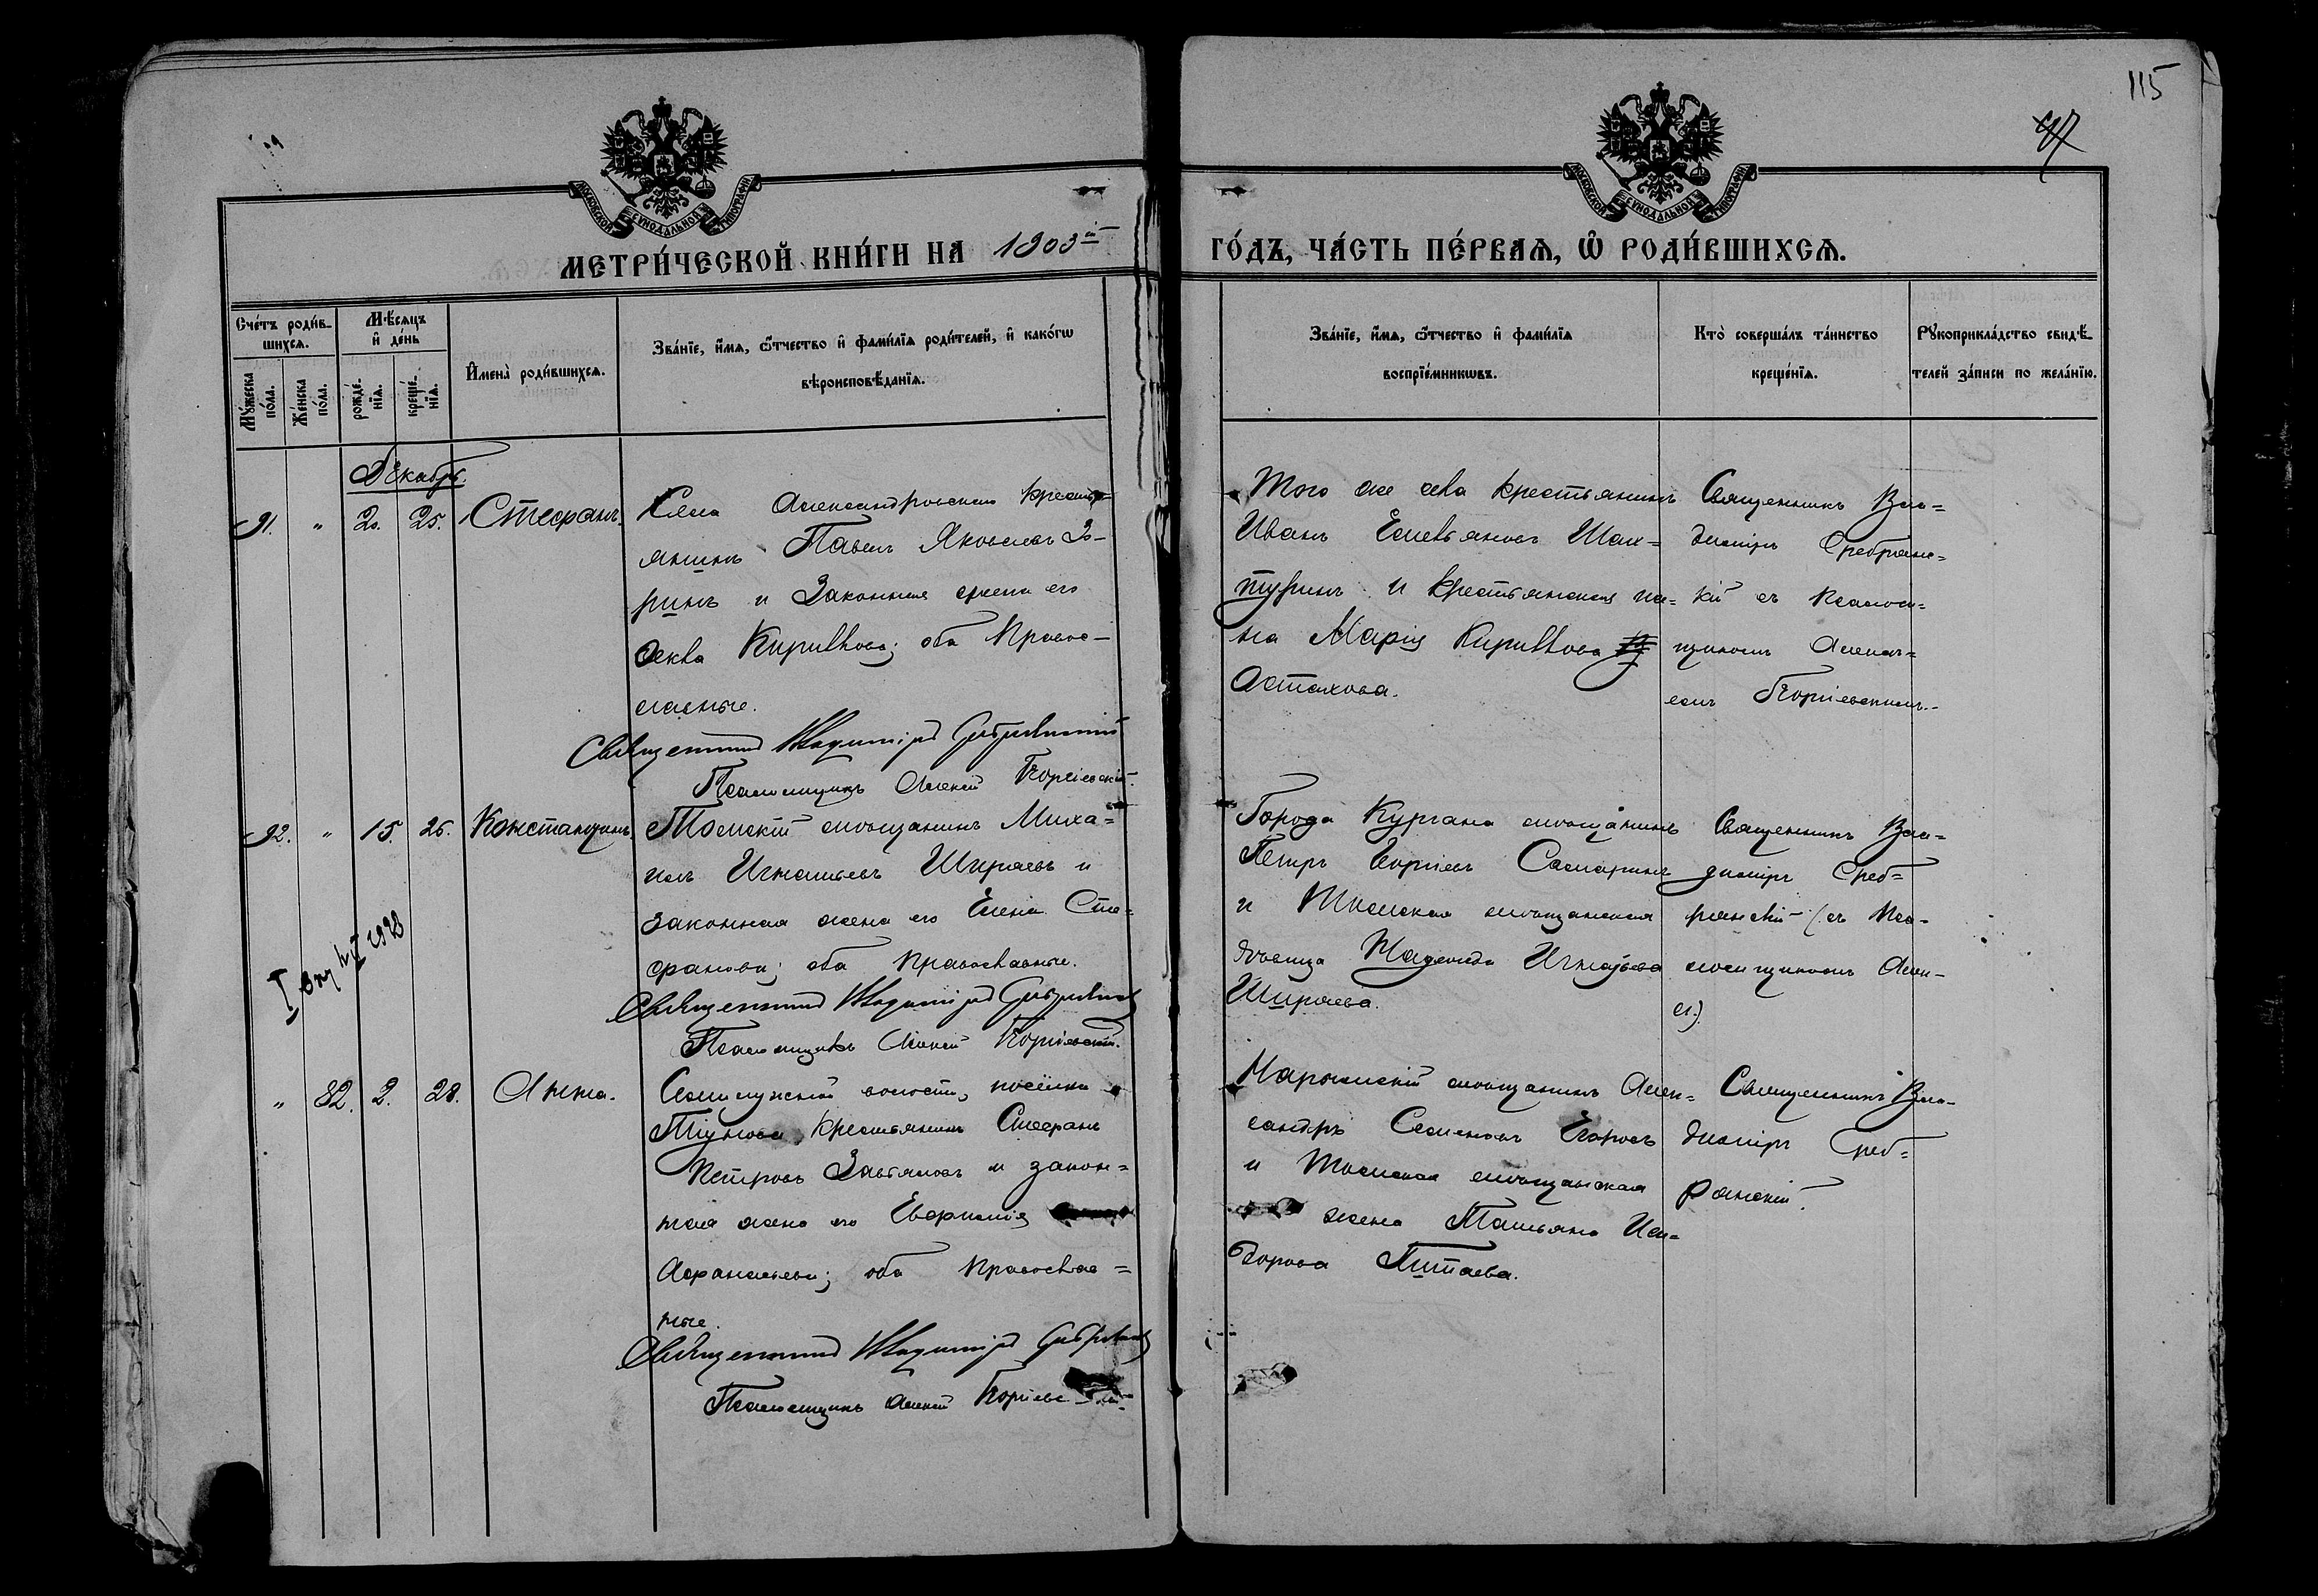 115
47
МОСКОВСКОЙ СѴНОДАЛЬНОЙ ТИПОГРАФІИ
МОСКОВСКОЙ СѴНОДАЛЬНОЙ ТИПОГРАФІИ
МЕТРИ́ЧЕСКОЙ КНИ́ГИ НА 1903й
ГО́ДЪ, ЧА́СТЬ ПЕ́РВАѦ, Ѡ҆ РОДИ́ВШИХСѦ.
Сче́тъ роди́в-
шихсѧ.
Мꙋ́жеска по́ла.
Же́нска по́ла.
Мѣ́сѧцъ
и҆ де́нь
рожде́нїѧ.
креще́нїѧ.
И҆мена̀ роди́вшихсѧ.
Зва́нїе, и҆́мѧ, ѻ҆́тчество и҆ фами́лїѧ роди́телей, и҆ како́гѡ
вѣроисповѣ́данїѧ.
Зва́нїе, и҆́мѧ, ѻ҆́тчество и҆ фами́лїѧ
воспрїе́мникѡвъ.
Кто̀ соверша́лъ та́инство
креще́нїѧ.
Рꙋкоприкла́дство свидѣ́-
телей за́писи по жела́нїю.
Декабрь.
91. " 20. 25. Стефанъ.
Села Александровскаго крестья=
янинъ Павелъ Яковлевъ Зо-
ринъ и законная жена его
Фекла Кириллова; оба Правос-
лавные.
Священникъ Владиміръ Сребрянскій
Псаломщикъ Алексей Георгіевскій.
Того же села крестьянинъ
Иванъ Емельяновъ Шах=
туринъ и крестьянская
на Марія Кириллова
Астахова.
Священникъ Вла=
диміръ Сребрянс=
кій съ псаломщ=
щикомъ Алекс=
емъ Георгіевскимъ.
92. " 15. 26. Константинъ.
Томскій мѣщанинъ Миха=
илъ Игнатьевъ Ширяевъ и
законная жена его Елена Сте=
фанова; оба Православные.
Священникъ Владиміръ Сребрянскій
Псаломщикъ Алексей Георгіевскій.
Города Кургана мѣщанинъ
Петръ Георгіевъ Самаринъ
и Томская мѣщанская
дѣвица Надежда Игнатьева
Ширяева.
Священникъ Вла=
диміръ Среб=
рянскій (съ Пса-
ломщикомъ Алек-
ег.)
1928
" 82. 2. 28. Анна.
Семилужской волости, посёлка
крестьянинъ Стефанъ
Петровъ Завьяловъ и закон=
ная жена его Евфимія
Афанасьева; оба Православ=
ные.
Священникъ Владиміръ Сребрянскій
Псаломщикъ Алексей Георгіевскій
Нарымскій мѣщанинъ Алек=
сандръ Семеновъ Егоровъ
и Томская мѣщанская
жена Татьяна Иси=
дорова Питаева.
Священникъ Вла-
диміръ Среб=
рянскій.